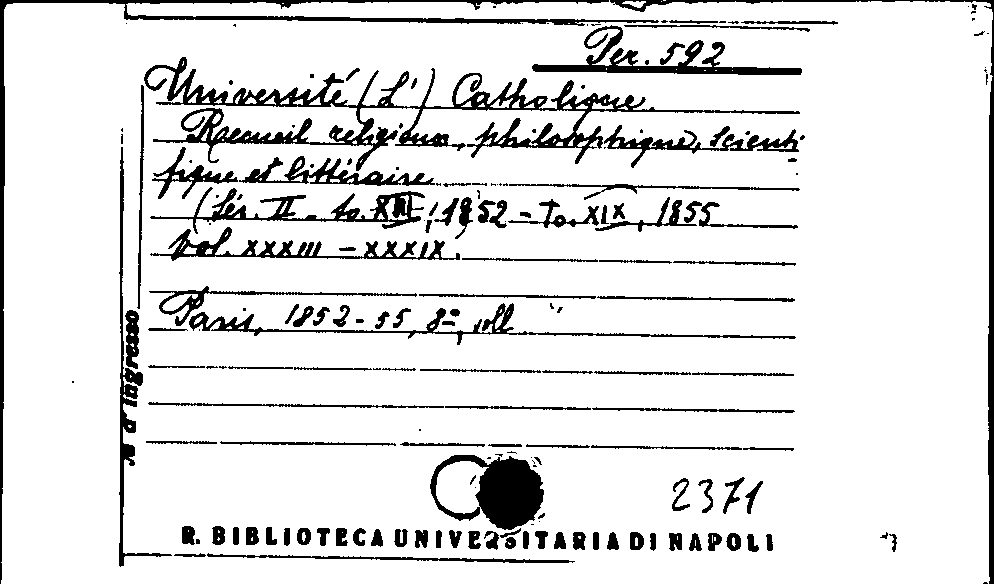 Per. 592
Université (L') Catholique.
Recueil religieux, philosophique, scienti-
fique et littéraire
(Sér. II - to. XIII, 1852 - To. XIX, 1855
Vol. XXXIII - XXXIX.)
Paris, 1852-55, 8º, ill
N. d'Ingresso
2371
R. BIBLIOTECA UNIVERSITARIA DI NAPOLI